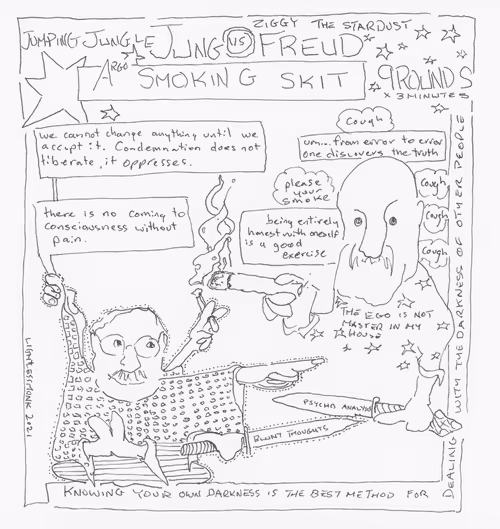 ZIGGY THE STARDUST
JUMPING JUNGLE JUNG VS FREUD
ARGO SMOKING SKIT
9 ROUNDS
x 3 MINUTES
we cannot change anything until we
accept it. Condemnation does not
liberate, it oppresses.
there is no coming to
consciousness without
pain.
Cough
um... from error to error
one discovers the truth
please
your
smoke
Cough
Cough
Cough
being entirely
honest with oneself
is a good
exercise
THE EGO IS NOT
MASTER IN MY
HOUSE
PSYCHO ANALYSIS
BLUNT THOUGHTS
LIGHTLESSMONK 2021
KNOWING YOUR OWN DARKNESS IS THE BEST METHOD FOR
DEALING WITH THE DARKNESS OF OTHER PEOPLE